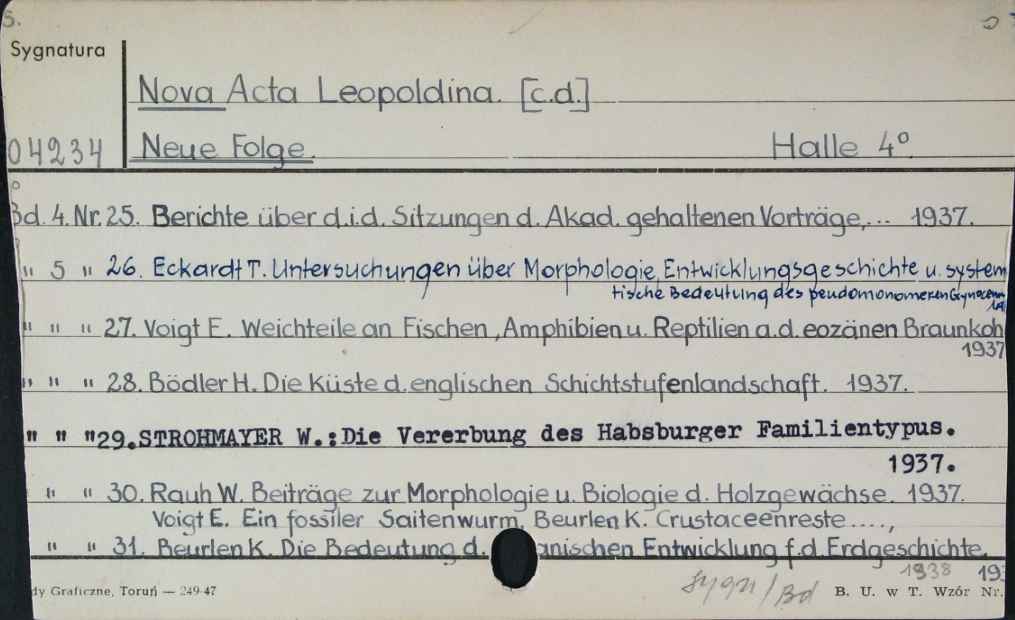 S.
Sygnatura
Nova Acta Leopoldina. [c.d.]
04234 Neue Folge. Halle 4°
Bd. 4. Nr. 25. Berichte über d.i.d. Sitzungen d. Akad. gehaltenen Vorträge,... 1937.
" 5 " 26. Eckardt T. Untersuchungen über Morphologie, Entwicklungsgeschichte u. system
tische Bedeutung des pseudomonomeren Gynoeceu
" " " 27. Voigt E. Weichteile an Fischen, Amphibien u. Reptilien a.d. eozänen Braunkoh
1937
" " " 28. Bödler H. Die Küste d. englischen Schichtstufenlandschaft. 1937.
" " "29.STROHMAYER W.:Die Vererbung des Habsburger Familientypus.
1937.
" " 30. Rauh W. Beiträge zur Morphologie u. Biologie d. Holzgewächse. 1937.
Voigt E. Ein fossiler Saitenwurm, Beurlen K. Crustaceenreste....,
" " 31. Beurlen K. Die Bedeutung d. anischen Entwicklung f.d. Erdgeschichte.
1938 193
dy Graficzne, Toruń — 249-47 B. U. w T. Wzór Nr.